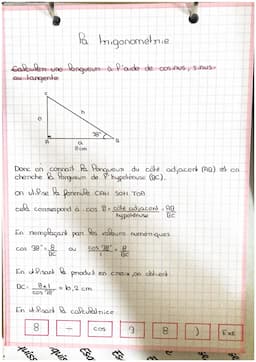 La trigonométrie
Calculer une longueur à l'aide de cosinus, sinus
ou tangente
C
h
o
38°
A
a
B
8 cm
Donc on connait la longueur du côté adjacent (AB) et on
cherche la longueur de l'hypoténuse (BC).
on utilise la formule CAH SOH TOA
cela correspond à cos B = côté adjacent / hypoténuse = AB / BC
En remplaçant par les valeurs numériques
cos 38° = 8 / BC ou cos 38° / 1 = 8 / BC
En utilisant le produit en croix, on obtient
BC = 8×1 / cos 38° =
En utilisant la calculatrice
8 cos 8 ) EXE